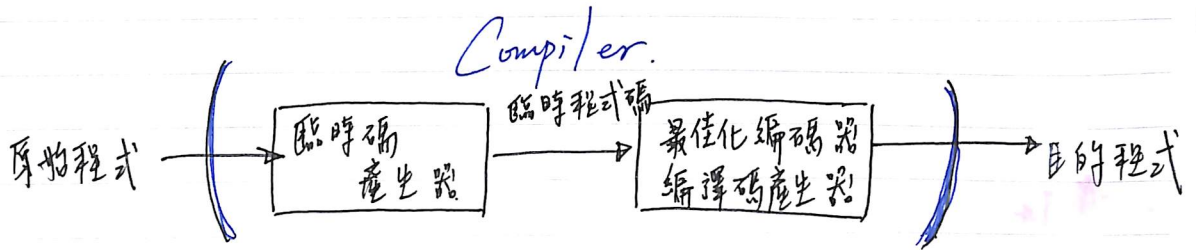 Compiler.
原始程式
臨時碼
產生器
臨時程式碼
最佳化編碼器
編譯碼產生器
目的程式